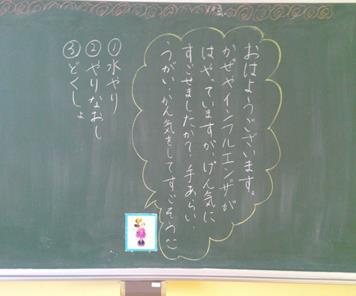 おはようございます。
かぜやインフルエンザが
はやっていますが、げん気に
すごせましたか？手あらい、
うがい、かん気をしてすごそう
①水やり
②やりなおし
③どくしょ